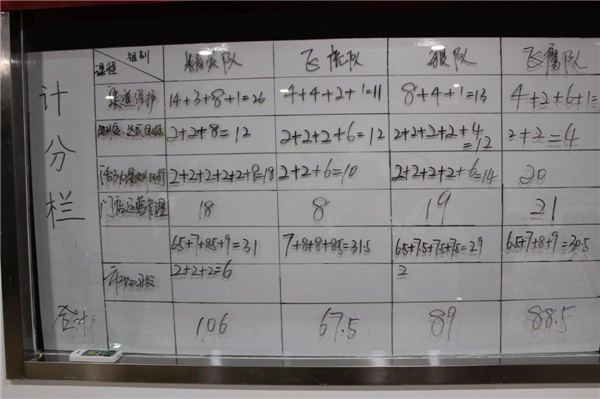 计分栏
课程 组别 精灵队 飞虎队 狼队 飞鹰队
渠道维护 14+3+8+1=26 4+4+2+1=11 8+4+1=13 4+2+6+1=
2+2+8=12 2+2+2+6=12 2+2+2+2+4=12 2+2=4
2+2+2+2+2+8=18 2+2+6=10 2+2+2+2+6=14 20
门店运营管理 18 8 19 21
6.5+7+8.5+9=31 7+8+8+8.5=31.5 6.5+7.5+7.5+7.5=29 6.5+7+8+9=30.5
2+2+2=6 2
合计 106 67.5 89 88.5